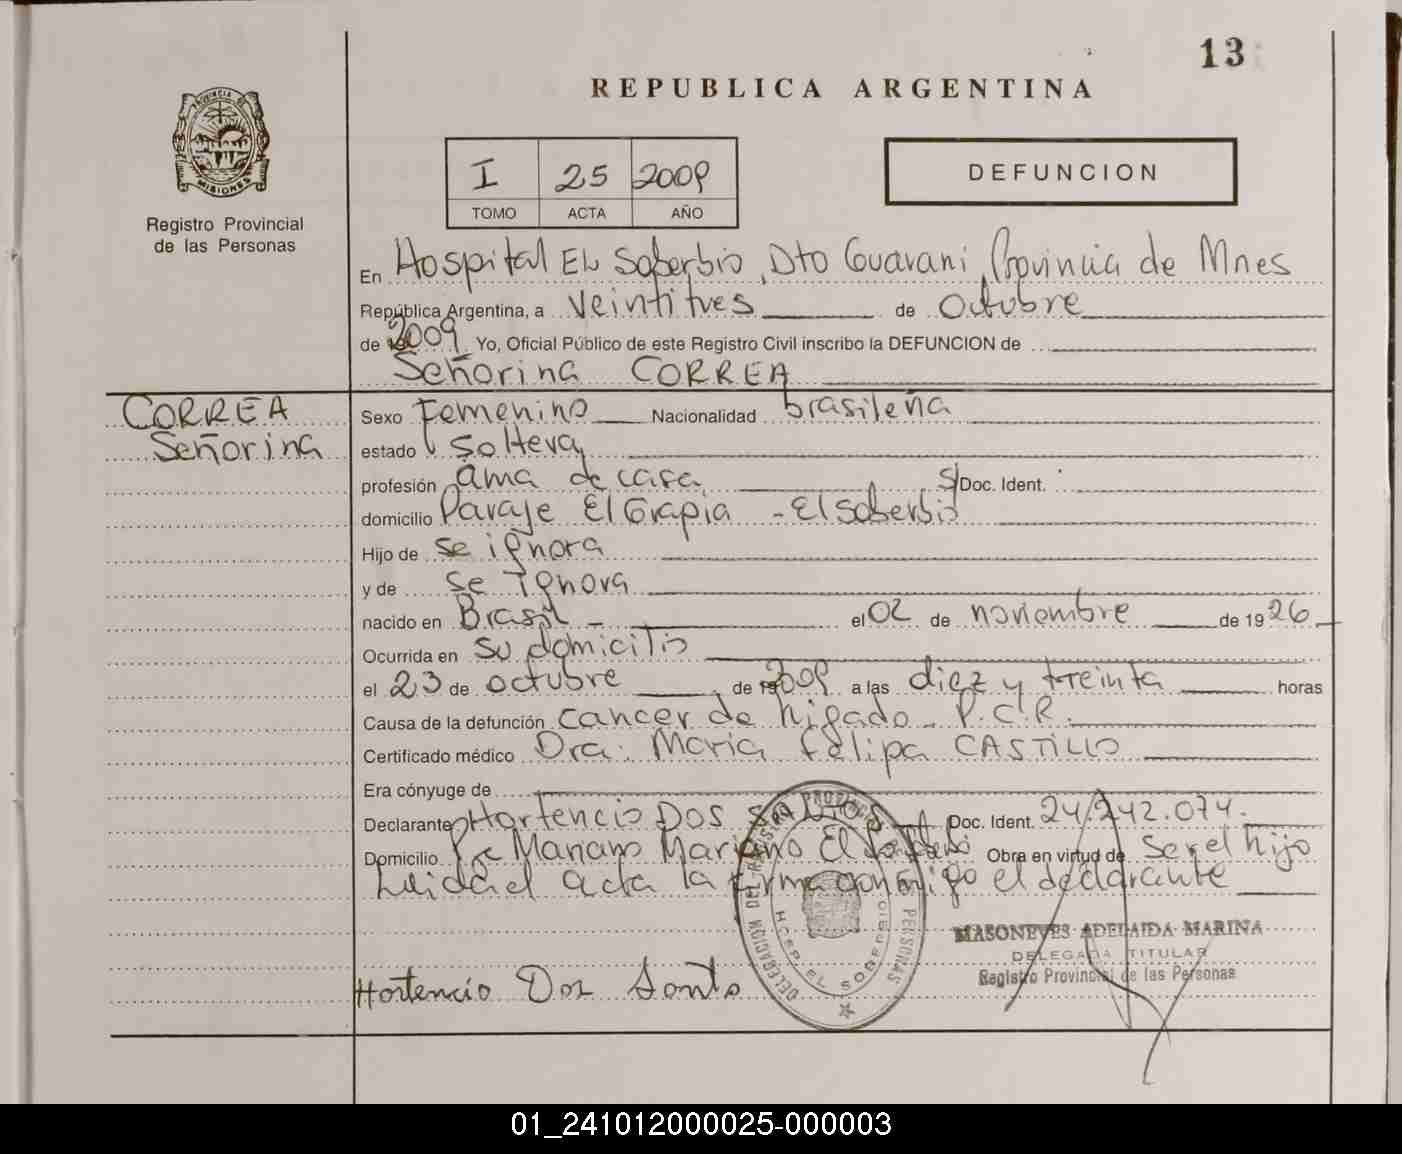 13
REPUBLICA ARGENTINA
PROVINCIA DE
MISIONES
Registro Provincial
de las Personas
I 25 2009
TOMO ACTA AÑO
DEFUNCION
En Hospital El Soberbio, Dto Guarani, Provincia de Mnes
República Argentina, a veintitres de Octubre
de 2009 Yo, Oficial Público de este Registro Civil inscribo la DEFUNCION de
Señorina CORREA
CORREA
Señorina
Sexo Femenino Nacionalidad brasileña
estado soltera
profesión ama de casa S/Doc. Ident.
domicilio Paraje El Grapia - El Soberbio
Hijo de se ignora
y de se ignora
nacido en Brasil - el 02 de noviembre de 1926
Ocurrida en su domicilio
el 23 de octubre de 2009 a las diez y treinta horas
Causa de la defunción cancer de higado - P.C.R.
Certificado médico Dra. Maria Felipa CASTILLO
Era cónyuge de
Declarante Hortencio DOS SANTOS Doc. Ident. 24.242.074.
Domicilio Mariano El Soberbio Obra en virtud de ser el hijo
Leida el acta la firma conmigo el declarante
DELEGACION DEL REGISTRO PROVINCIAL PERSONAS
HOSP. EL SOBERBIO
MASONEVES ADELAIDA MARINA
DELEGADA TITULAR
Registro Provincial de las Personas
Hortencio Dos Santo
01_241012000025-000003